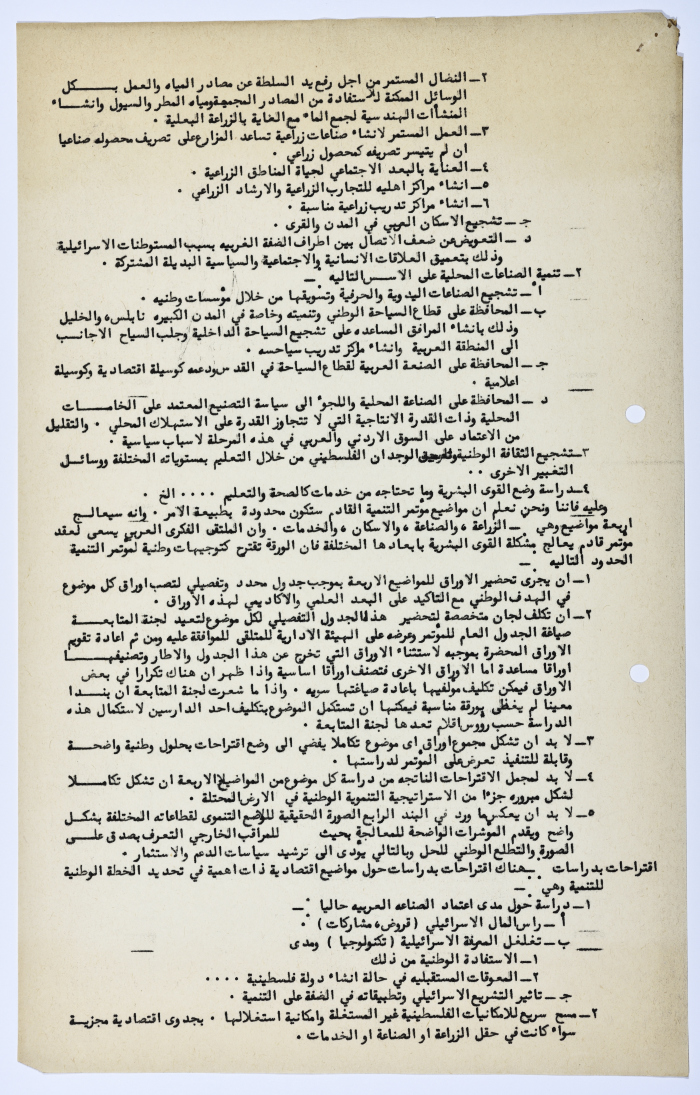 ٢ــ النضال المستمر من اجل رفع يد السلطة عن مصادر المياه والعمل بـــــكل
الوسائل الممكنة للاستفادة من المصادر المجمعة ومياه المطر والسيول وانشـــاء
المنشآت الهندسية لجمع الماء مع العناية بالزراعة البعلية .
٣ــ العمل المستمر لانشاء صناعات زراعية تساعد المزارع على تصريف محصوله صناعيا
ان لم يتيسر تصريفه كمحصول زراعي .
٤ــ العناية بالبعد الاجتماعي لحياة المناطق الزراعية .
٥ــ انشاء مراكز اهليه للتجارب الزراعية والارشاد الزراعي .
٦ــ انشاء مراكز تدريب زراعية مناسبة .
جـ ــ تشجيع الاسكان العربي في المدن والقرى .
د ــ التعويض عن ضعف الاتصال بين اطراف الضفة الغربيه بسبب المستوطنات الاسرائيلية
وذلك بتعميق العلاقات الانسانية والاجتماعية والسياسية البديلة المشتركة .
٢ــ تنمية الصناعات المحلية على الاسس التاليه :ــ
أ ــ تشجيع الصناعات اليدوية والحرفية وتسويقها من خلال مؤسسات وطنيه .
ب ــ المحافظة على قطاع السياحة الوطني وتنميته وخاصة في المدن الكبيره نابلس، والخليل
وذلك بانشاء المرافق المساعده على تشجيع السياحة الداخلية وجلب السياح الاجانب
الى المنطقة العربية وانشاء مراكز تدريب سياحيه .
جـ ــ المحافظة على الصبغة العربية لقطاع السياحة في القدس ودعمه كوسيلة اقتصادية وكوسيلة
اعلامية .
د ــ المحافظة على الصناعة المحلية واللجوء الى سياسة التصنيع المعتمد على الخامـــات
المحلية وذات القدرة الانتاجية التي لا تتجاوز القدرة على الاستهلاك المحلي . والتقليل
من الاعتماد على السوق الاردني والعربي في هذه المرحلة لاسباب سياسية .
٣ــ تشجيع الثقافة الوطنية الوجدان الفلسطيني من خلال التعليم بمستوياته المختلفة ووسائـل
التغيير الاخرى . .
٤ــ دراسة وضع القوى البشرية وما تحتاجه من خدمات كالصحة والتعليم .... الخ .
وعليه فاننا ونحن نعلم ان مواضيع مؤتمر التنمية القادم ستكون محدودة بطبيعة الامر . وانه سيعالـج
اربعة مواضيع وهي :ــ الزراعة ، والصناعة ، والاسكان ، والخدمات . وان الملتقى الفكرى العربي يسعى لعقد
مؤتمر قادم يعالج مشكلة القوى البشرية بابعادها المختلفة فان الورقة تقترح كتوجيهات وطنية لمؤتمر التنمية
الحدود التاليه :ــ
١ــ ان يجرى تحضير الاوراق للمواضيع الاربعة بموجب جدول محدد وتفصيلي لتصب اوراق كل موضوع
في الهدف الوطني مع التاكيد على البعد العلمي والاكاديمي لهذه الاوراق .
٢ــ ان تكلف لجان متخصصة لتحضير هذا الجدول التفصيلي لكل موضوع لتعيد لجنة المتابعـــة
صياغة الجدول العام للمؤتمر وعرضه على الهيئة الادارية للملتقى للموافقة عليه ومن ثم اعادة تقويم
الاوراق المحضرة بموجبه لاستثناء الاوراق التي تخرج عن هذا الجدول والاطار وتصنيفهــا
اوراقا مساعدة اما الاوراق الاخرى فتصنف اوراقا اساسية واذا ظهر ان هناك تكرارا في بعض
الاوراق فيمكن تكليف مؤلفيها باعادة صياغتها سويه . واذا ما شعرت لجنة المتابعة ان بنـــدا
معينا لم يغطى بورقة مناسبة فيمكنها ان تستكمل الموضوع بتكليف احد الدارسين لاستكمال هذه
الدراسة حسب رؤوس اقلام تعدها لجنة المتابعة .
٣ــ لا بد ان تشكل مجموع اوراق اى موضوع تكاملا يفضي الى وضع اقتراحات بحلول وطنية واضحـة
وقابلة للتنفيذ تعرض على المؤتمر لدراستها .
٤ــ لا بد لمجمل الاقتراحات الناتجه من دراسة كل موضوع من المواضيع الاربعة ان تشكل تكامـــلا
لشكل جزءا من الاستراتيجية التنموية الوطنية في الارض المحتلة .
٥ــ لا بد ان يعكس ما ورد في البند الرابع الصورة الحقيقية للوضع التنموى لقطاعاته المختلفة بشكـل
واضح ويقدم المؤشرات الواضحة للمعالجة بحيث للمراقب الخارجي التعرف بصدق علــى
الصورة والتطلع الوطني للحل وبالتالي يؤدى الى ترشيد سياسات الدعم والاستثمار .
اقتراحات بدراسات :ــ هناك اقتراحات بدراسات حول مواضيع اقتصادية ذات اهمية في تحديد الخطة الوطنية
للتنمية وهي :ــ
١ــ دراسة حول مدى اعتماد الصناعه العربيه حاليا :ــ
أ ــ راس المال الاسرائيلي ( قروض، مشاركات ) .
ب ــ تغلغل المعرفة الاسرائيلية ( تكنولوجيا ) ومدى
١ــ الاستفادة الوطنية من ذلك
٢ــ المعوقات المستقبليه في حالة انشاء دولة فلسطينية ....
جـ ــ تاثير التشريع الاسرائيلي وتطبيقاته في الضفة على التنمية .
٢ــ مسح سريع للامكانيات الفلسطينية غير المستغلة وامكانية استغلالها . بجدوى اقتصادية مجزيـة
سواء كانت في حقل الزراعة او الصناعة او الخدمات .